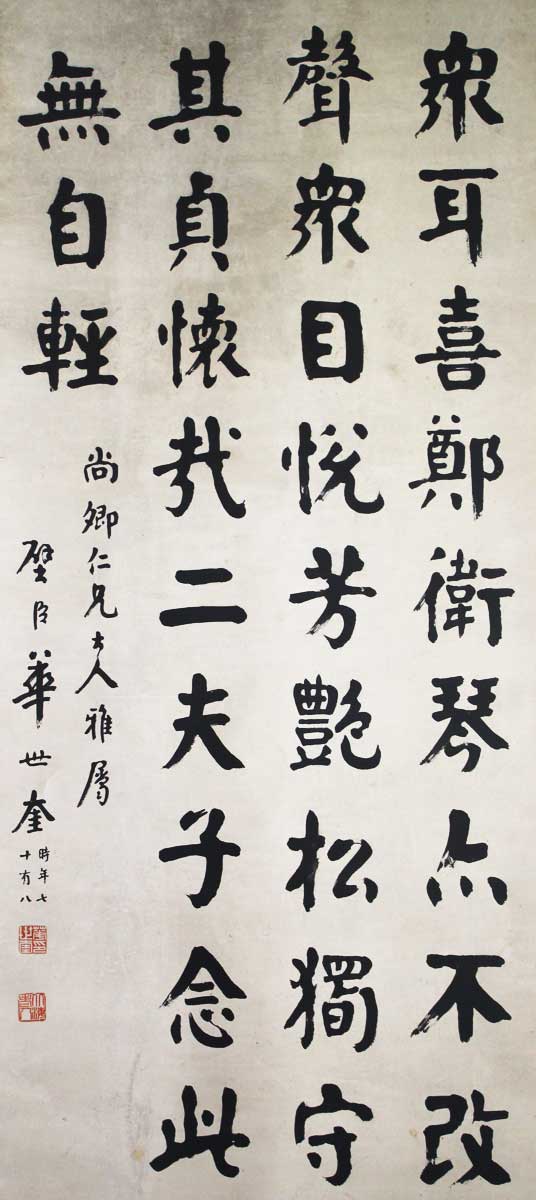 眾耳喜鄭衛琴亦不改
聲眾目悅芳艷松獨守
其貞懷哉二夫子念此
無自輕
尚卿仁兄大人雅屬
璧臣華世奎
時年七
十有八